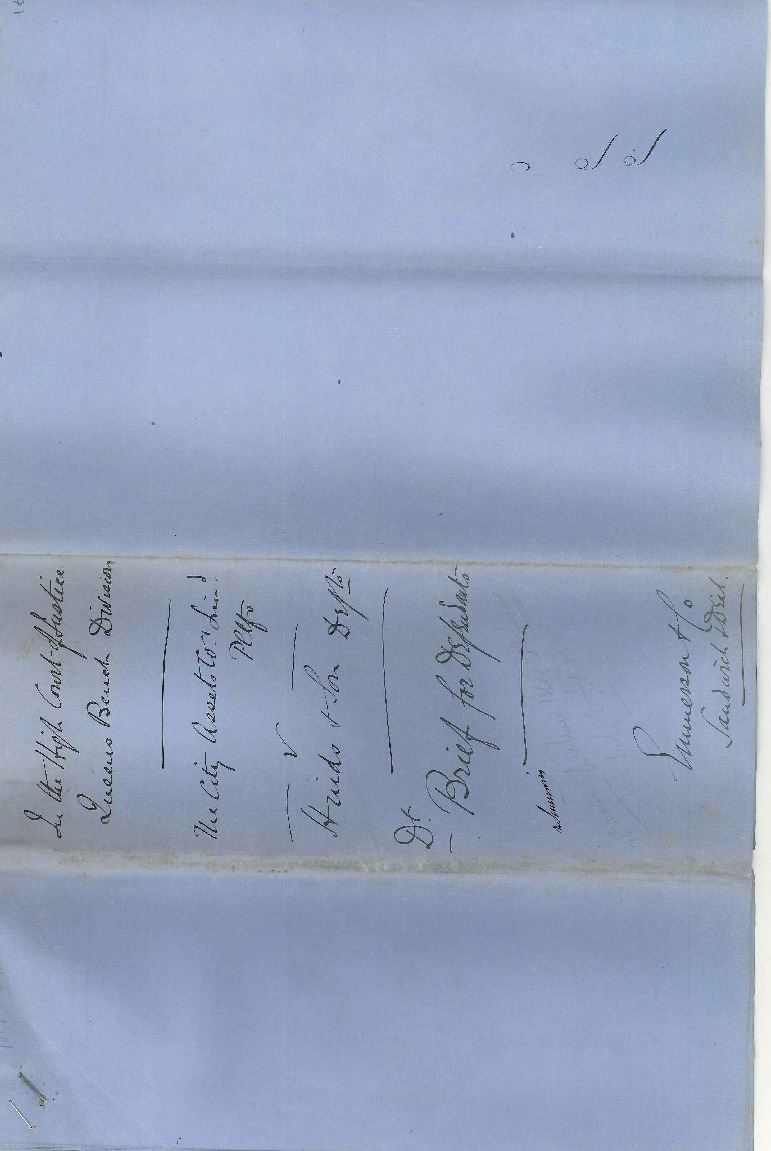 In the High Court of Justice
Queens Bench Division
The City Assets Co. Limd.
Pltfs
v
Hinds & Son Defts
Dt.
Brief for Defendants
Emmerson & Co
Sandwich & Deal.